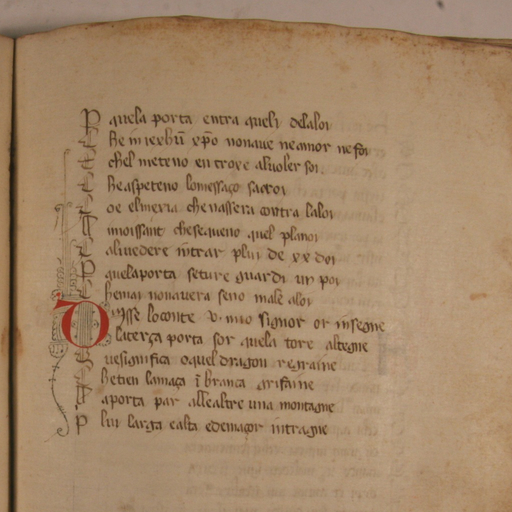 P quela porta entra queli delalor
Ke in iexhū xp̄o non aue ne amor ne for
chel meteno en trove al voler sor
Ke aspeteno lo messaço sacror
oe el meria che nassera contra lalor
imoissant che sequeno quel planor
al vedere intrar plui de xx dor
quela porta seture guardi un por
he mai non avera seno male alor
Disse lo conte v. mio signor or insegne
la terça porta sor quela tore altegne
ve significa o quel dragon regraine
he tien la maça ī branca grifaine
aporta par all altre una montagne
P lui larga e alta e demaçor intragne